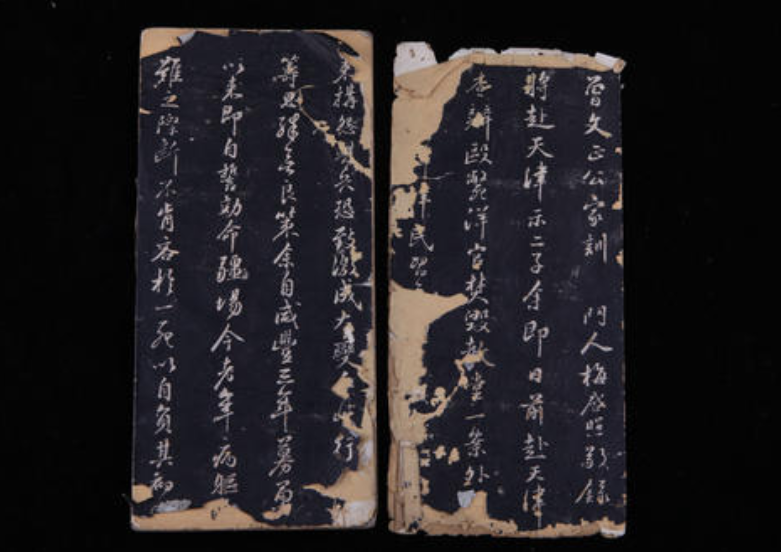 曾文正公家訓 門人梅啓照敬錄
將赴天津示二子 余即日前赴天津
查辦毆斃洋官焚毀教堂一案外
津民習
構怨興兵恐致激成大變余此行
籌思殊無良策余自咸豐三年募勇
以來即自誓効命疆場今老年病軀
難之際斷不肯吝於一死以自負其初